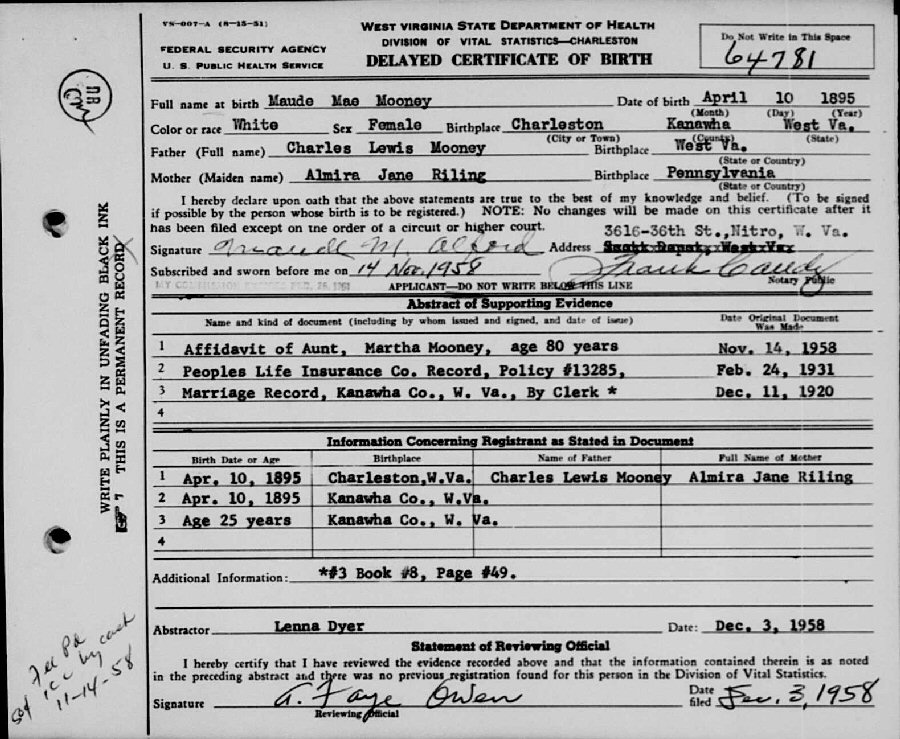 VS-007-A (8-15-51)
WEST VIRGINIA STATE DEPARTMENT OF HEALTH
FEDERAL SECURITY AGENCY
DIVISION OF VITAL STATISTICS—CHARLESTON
U. S. PUBLIC HEALTH SERVICE
DELAYED CERTIFICATE OF BIRTH
Do Not Write in This Space
64781
Full name at birth Maude Mae Mooney Date of birth April 10 1895
(Month) (Day) (Year)
Color or race White Sex Female Birthplace Charleston Kanawha West Va.
(City or Town) (County) (State)
Father (Full name) Charles Lewis Mooney Birthplace West Va.
(State or Country)
Mother (Maiden name) Almira Jane Riling Birthplace Pennsylvania
(State or Country)
I hereby declare upon oath that the above statements are true to the best of my knowledge and belief. (To be signed
if possible by the person whose birth is to be registered.) NOTE: No changes will be made on this certificate after it
has been filed except on the order of a circuit or higher court.
3616-36th St., Nitro, W. Va.
Signature Maude M. Alford Address
Subscribed and sworn before me on 14 Nov. 1958 Frank Caudy
Notary Public
MY COMMISSION EXPIRES FEB. 26, 1961
APPLICANT—DO NOT WRITE BELOW THIS LINE
Abstract of Supporting Evidence
Name and kind of document (including by whom issued and signed, and date of issue) Date Original Document
Was Made
1 Affidavit of Aunt, Martha Mooney, age 80 years Nov. 14, 1958
2 Peoples Life Insurance Co. Record, Policy #13285, Feb. 24, 1931
3 Marriage Record, Kanawha Co., W. Va., By Clerk * Dec. 11, 1920
4
Information Concerning Registrant as Stated in Document
Birth Date or Age Birthplace Name of Father Full Name of Mother
1 Apr. 10, 1895 Charleston,W.Va. Charles Lewis Mooney Almira Jane Riling
2 Apr. 10, 1895 Kanawha Co., W.Va.
3 Age 25 years Kanawha Co., W. Va.
4
Additional Information: *#3 Book #8, Page #49.
Abstractor Lenna Dyer Date: Dec. 3, 1958
Statement of Reviewing Official
I hereby certify that I have reviewed the evidence recorded above and that the information contained therein is as noted
in the preceding abstract and there was no previous registration found for this person in the Division of Vital Statistics.
Signature A. Faye Owen Date filed Dec. 3, 1958
Reviewing Official
WRITE PLAINLY IN UNFADING BLACK INK
7 THIS IS A PERMANENT RECORD
Fee Pd
1cc by cash
11-14-58